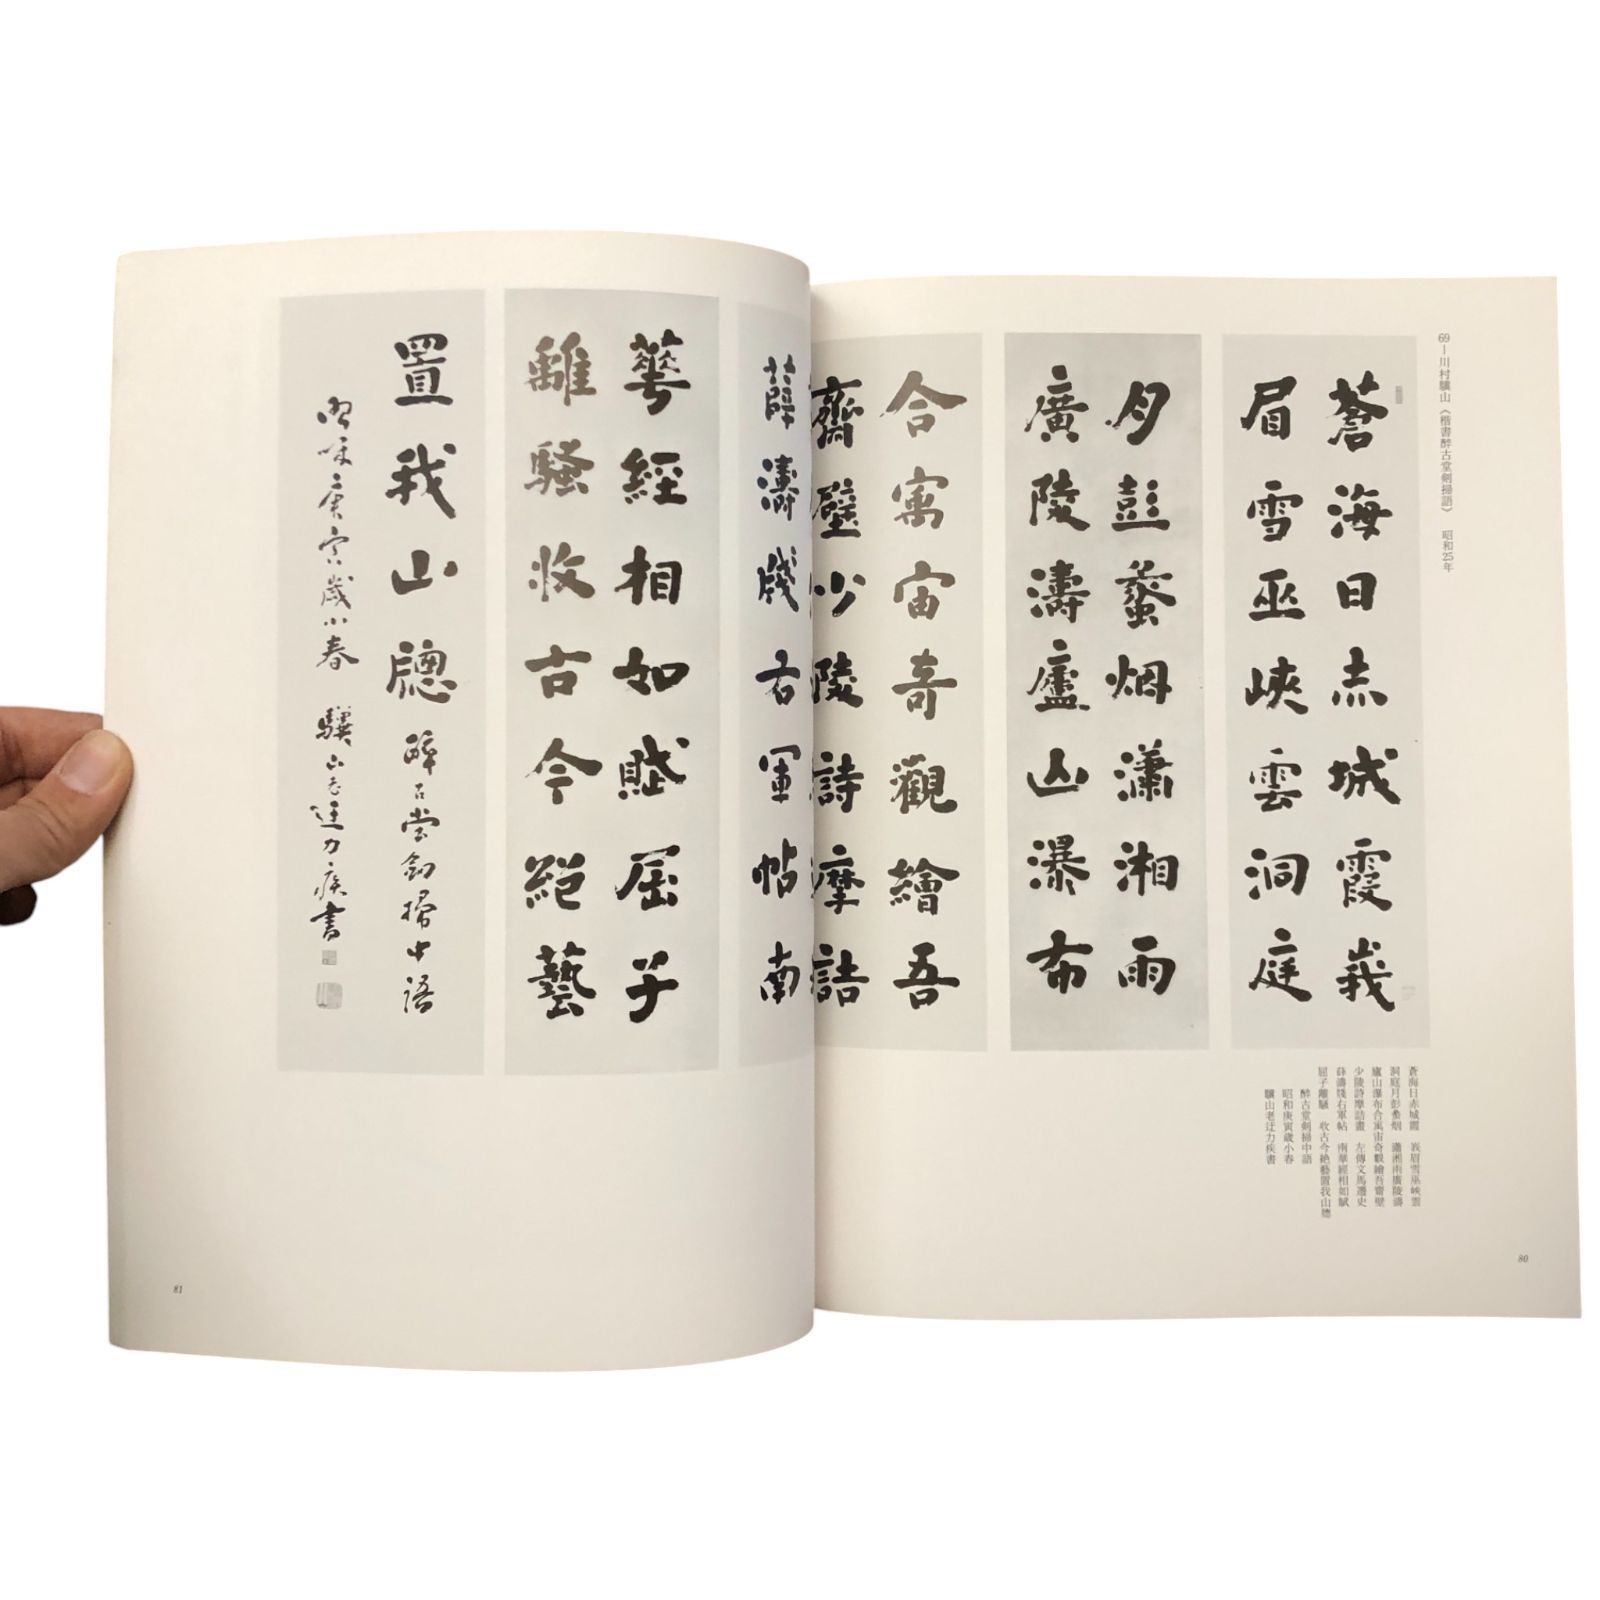 69―川村驥山《楷書酔古堂剣掃語》 昭和25年
蒼海日赤城霞峩
眉雪巫峽雲洞庭
月彭蠡烟瀟湘雨
廣陵濤廬山瀑布
合寓宙奇觀繪吾
齋壁少陵詩摩詰
蒼海日赤城霞 峩眉雪巫峡雲
洞庭月彭蠡烟 瀟湘雨廣陵濤
廬山瀑布合寓宙奇觀繪吾齋壁
少陵詩摩詰畫 左傳文馬遷史
薛濤牋右軍帖 南華經相如賦
屈子離騒 收古今絶藝置我山牕
酔古堂剣掃中語
昭和庚寅歳小春
驥山老迂力疾書
80
薛濤牋右軍帖南
華經相如賦屈子
離騷收古今絕藝
置我山牕 醉古堂劍掃中語
昭咊庚寅歳小春 驥山老迂力疾書
81